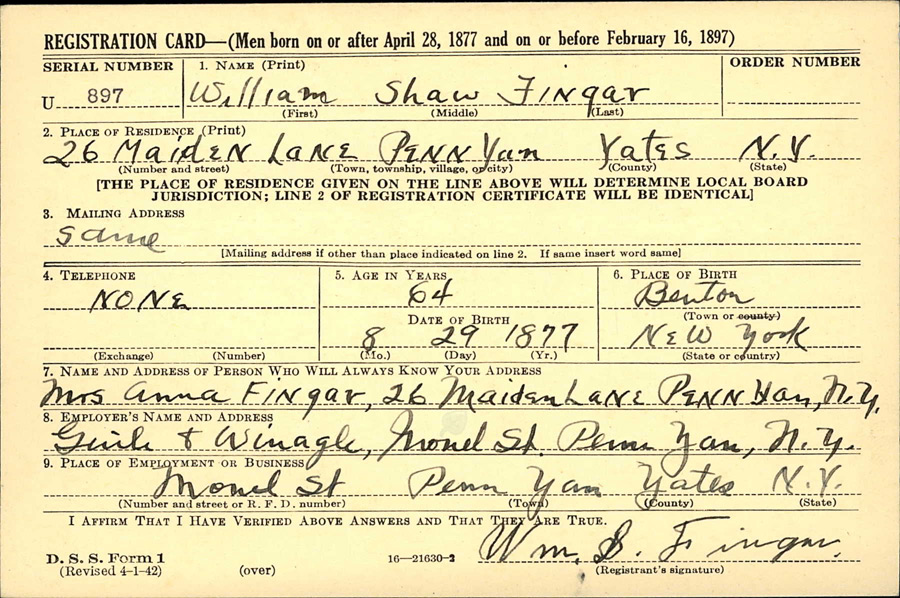 REGISTRATION CARD—(Men born on or after April 28, 1877 and on or before February 16, 1897)
SERIAL NUMBER 1. NAME (Print) ORDER NUMBER
U 897 William Shaw Fingar
(First) (Middle) (Last)
2. PLACE OF RESIDENCE (Print)
26 MAIDEN LANE PENN Yan Yates N.Y.
(Number and street) (Town, township, village, or city) (County) (State)
[THE PLACE OF RESIDENCE GIVEN ON THE LINE ABOVE WILL DETERMINE LOCAL BOARD
JURISDICTION; LINE 2 OF REGISTRATION CERTIFICATE WILL BE IDENTICAL]
3. MAILING ADDRESS
Same
[Mailing address if other than place indicated on line 2. If same insert word same]
4. TELEPHONE 5. AGE IN YEARS 6. PLACE OF BIRTH
NONE 64 Benton
(Town or county)
DATE OF BIRTH
8 29 1877 NEW York
(Exchange) (Number) (Mo.) (Day) (Yr.) (State or country)
7. NAME AND ADDRESS OF PERSON WHO WILL ALWAYS KNOW YOUR ADDRESS
Mrs Anna Fingar, 26 Maiden LANE PENN Yan, N.Y.
8. EMPLOYER'S NAME AND ADDRESS
& Winagle, St. Penn Yan, N.Y.
9. PLACE OF EMPLOYMENT OR BUSINESS
St Penn Yan Yates N.Y.
(Number and street or R. F. D. number) (Town) (County) (State)
I AFFIRM THAT I HAVE VERIFIED ABOVE ANSWERS AND THAT THEY ARE TRUE.
Wm. S. Fingar.
D. S. S. Form 1
(Revised 4-1-42) (over) 16—21630-2 (Registrant's signature)